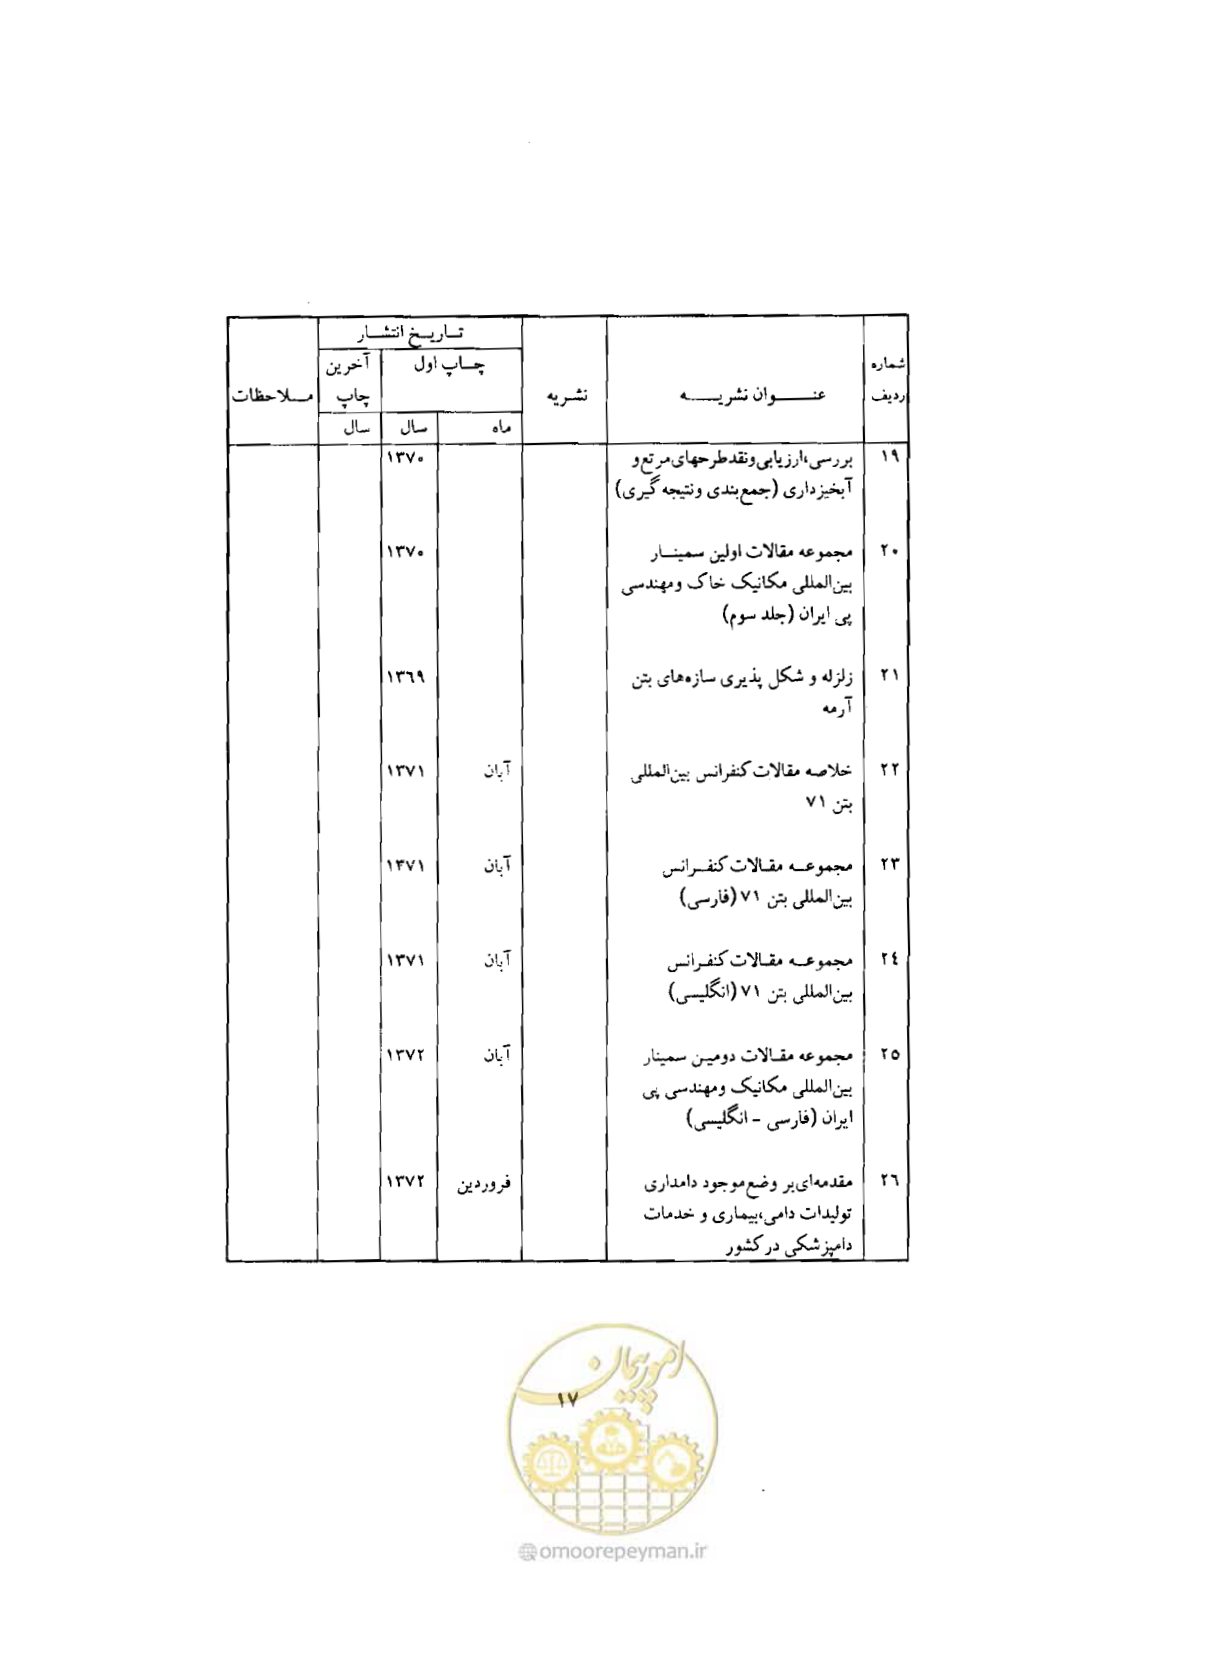 تاریخ انتشار
شماره ردیف
عنوان نشریه
نشریه
چاپ اول
آخرین چاپ
ملاحظات
ماه
سال
سال
۱۹ بررسی،ارزیابی ونقدطرحهای مرتع و ۱۳۷۰
آبخیزداری (جمع‌بندی ونتیجه گیری)
۲۰ مجموعه مقالات اولین سمینار ۱۳۷۰
بین‌المللی مکانیک خاک ومهندسی
پی ایران (جلد سوم)
۲۱ زلزله و شکل پذیری سازه‌های بتن ۱۳٦۹
آرمه
۲۲ خلاصه مقالات کنفرانس بین‌المللی آبان ۱۳۷۱
بتن ۷۱
۲۳ مجموعه مقالات کنفرانس آبان ۱۳۷۱
بین‌المللی بتن ۷۱ (فارسی)
۲٤ مجموعه مقالات کنفرانس آبان ۱۳۷۱
بین‌المللی بتن ۷۱ (انگلیسی)
۲۵ مجموعه مقالات دومین سمینار آبان ۱۳۷۲
بین‌المللی مکانیک ومهندسی پی
ایران (فارسی - انگلیسی)
۲٦ مقدمه‌ای بر وضع موجود دامداری فروردین ۱۳۷۲
تولیدات دامی،بیماری و خدمات
دامپزشکی در کشور
امور پیمان
۱۷
omoorepeyman.ir